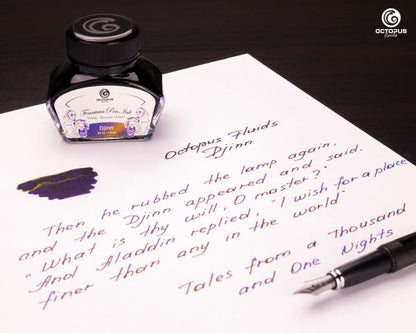 OCTOPUS
fluids
OCTOPUS
Fountain Pen Ink
Djinn
Octopus Fluids
Djinn
Then he rubbed the lamp again.
and the Djinn appeared and said.
"What is thy will, O master?"
And Aladdin replied, "I wish for a place
finer than any in the world"
Tales from a Thousand
and One Nights